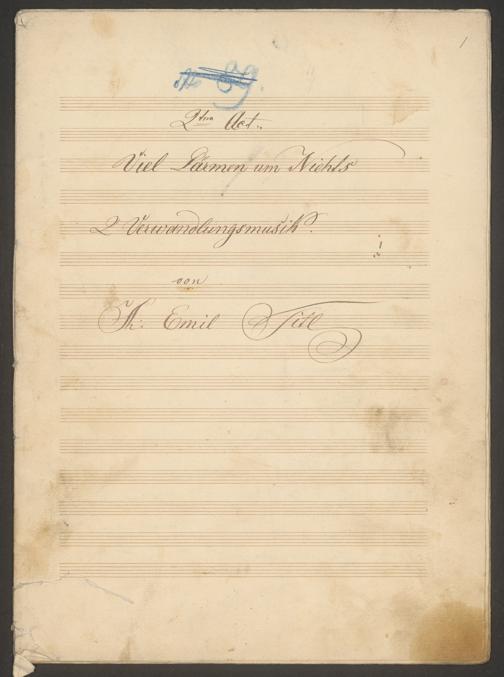 1
89.
2ten Act.
Viel Lärmen um Nichts
2 Verwandlungsmusik.
von
Emil Titl